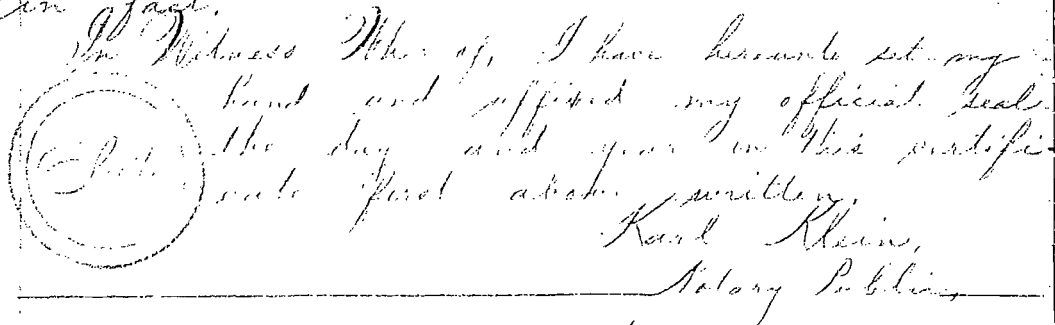 in fact.
In Witness Whereof, I have hereunto set my
hand and affixed my official seal
the day and year in this certifi-
cate first above written.
Karl Klein,
Notary Public,